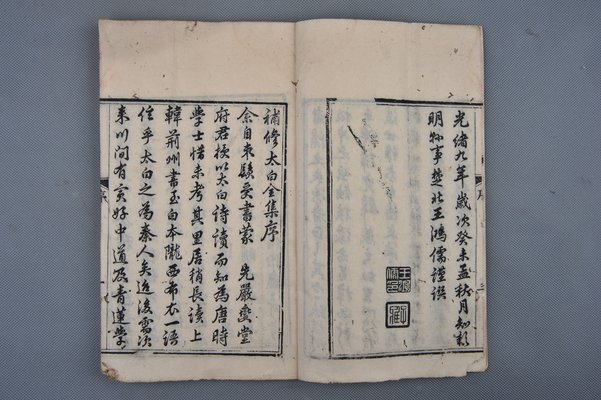 光緒九年歲次癸未孟秋月知彰
明縣事楚北王鴻儒謹譔
補修太白全集序
余自束髮受書蒙 先嚴堂
府君授以太白詩讀而知為唐時
學士惜未考其里居稍長讀上
韓荊州書至白本隴西布衣一語
信乎太白之為秦人矣迨後需次
來川間有寅好中道及青蓮學